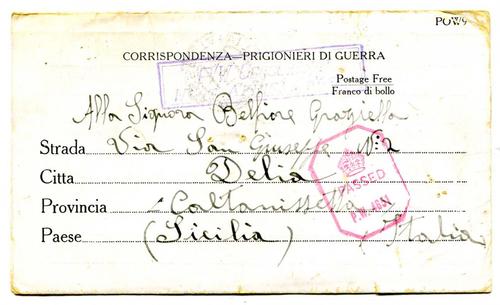 POW/9
CORRISPONDENZA—PRIGIONIERI DI GUERRA
Postage Free
Franco di bollo
Alla Signora Belfiore Graziella
Strada Via San Giuseppe N: 2
Citta Delia
Provincia Caltanissetta
Paese (Sicilia) Italia
PASSED
P.W.